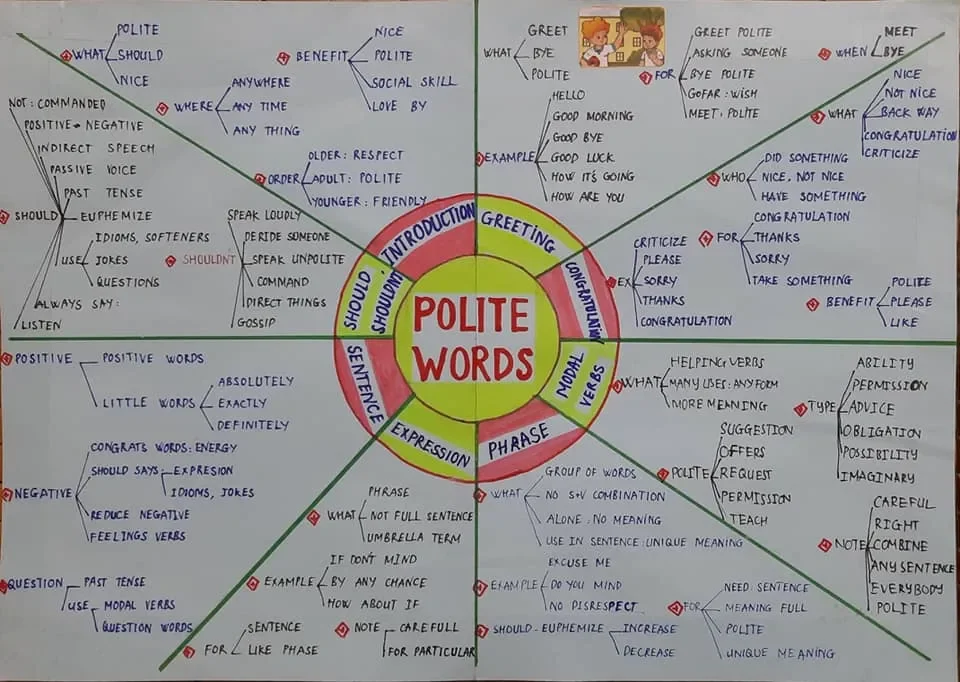 POLITE WORDS
INTRODUCTION
GREETING
CONGRATULATION
MODAL VERBS
PHRASE
EXPRESSION
SENTENCE
SHOULD, SHOULDN'T
WHAT
POLITE
SHOULD
NICE
WHERE
ANYWHERE
ANY TIME
ANY THING
BENEFIT
NICE
POLITE
SOCIAL SKILL
LOVE BY
ORDER
OLDER: RESPECT
ADULT: POLITE
YOUNGER: FRIENDLY
WHAT
GREET
BYE
POLITE
FOR
GREET POLITE
ASKING SOMEONE
BYE POLITE
GOFAR: WISH
MEET: POLITE
WHEN
MEET
BYE
EXAMPLE
HELLO
GOOD MORNING
GOOD BYE
GOOD LUCK
HOW IT'S GOING
HOW ARE YOU
WHAT
NICE
NOT NICE
BACK WAY
CONGRATULATION
CRITICIZE
WHO
DID SOMETHING
NICE, NOT NICE
HAVE SOMETHING
FOR
CONGRATULATION
THANKS
SORRY
TAKE SOMETHING
EX
CRITICIZE
PLEASE
SORRY
THANKS
CONGRATULATION
BENEFIT
POLITE
PLEASE
LIKE
WHAT
HELPING VERBS
MANY USES: ANY FORM
MORE MEANING
TYPE
ABILITY
PERMISSION
ADVICE
OBLIGATION
POSSIBILITY
IMAGINARY
POLITE
SUGGESTION
OFFERS
REQUEST
PERMISSION
TEACH
NOTE
CAREFUL
RIGHT
COMBINE
ANY SENTENCE
EVERYBODY
POLITE
WHAT
GROUP OF WORDS
NO S+V COMBINATION
ALONE: NO MEANING
USE IN SENTENCE: UNIQUE MEANING
EXAMPLE
EXCUSE ME
DO YOU MIND
NO DISRESPECT
FOR
NEED: SENTENCE
MEANING FULL
POLITE
UNIQUE MEANING
SHOULD - EUPHEMIZE
INCREASE
DECREASE
WHAT
PHRASE
NOT FULL SENTENCE
UMBRELLA TERM
EXAMPLE
IF DON'T MIND
BY ANY CHANCE
HOW ABOUT IF
FOR
SENTENCE
LIKE PHASE
NOTE
CAREFULL
FOR PARTICULAR
POSITIVE
POSITIVE WORDS
LITTLE WORDS
ABSOLUTELY
EXACTLY
DEFINITELY
NEGATIVE
CONGRATS WORDS: ENERGY
SHOULD SAYS
EXPRESION
IDIOMS, JOKES
REDUCE NEGATIVE
FEELINGS VERBS
QUESTION
PAST TENSE
USE
MODAL VERBS
QUESTION WORDS
SHOULD
NOT: COMMANDED
POSITIVE → NEGATIVE
INDIRECT SPEECH
PASSIVE VOICE
PAST TENSE
EUPHEMIZE
USE
IDIOMS, SOFTENERS
JOKES
QUESTIONS
ALWAYS SAY:
LISTEN
SHOULDN'T
SPEAK LOUDLY
DERIDE SOMEONE
SPEAK UNPOLITE
COMMAND
DIRECT THINGS
GOSSIP